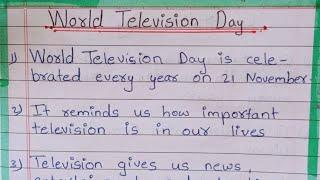 World Television Day
1) World Television Day is cele-
brated every year on 21 November.
2) It reminds us how important
television is in our lives
3) Television gives us news,